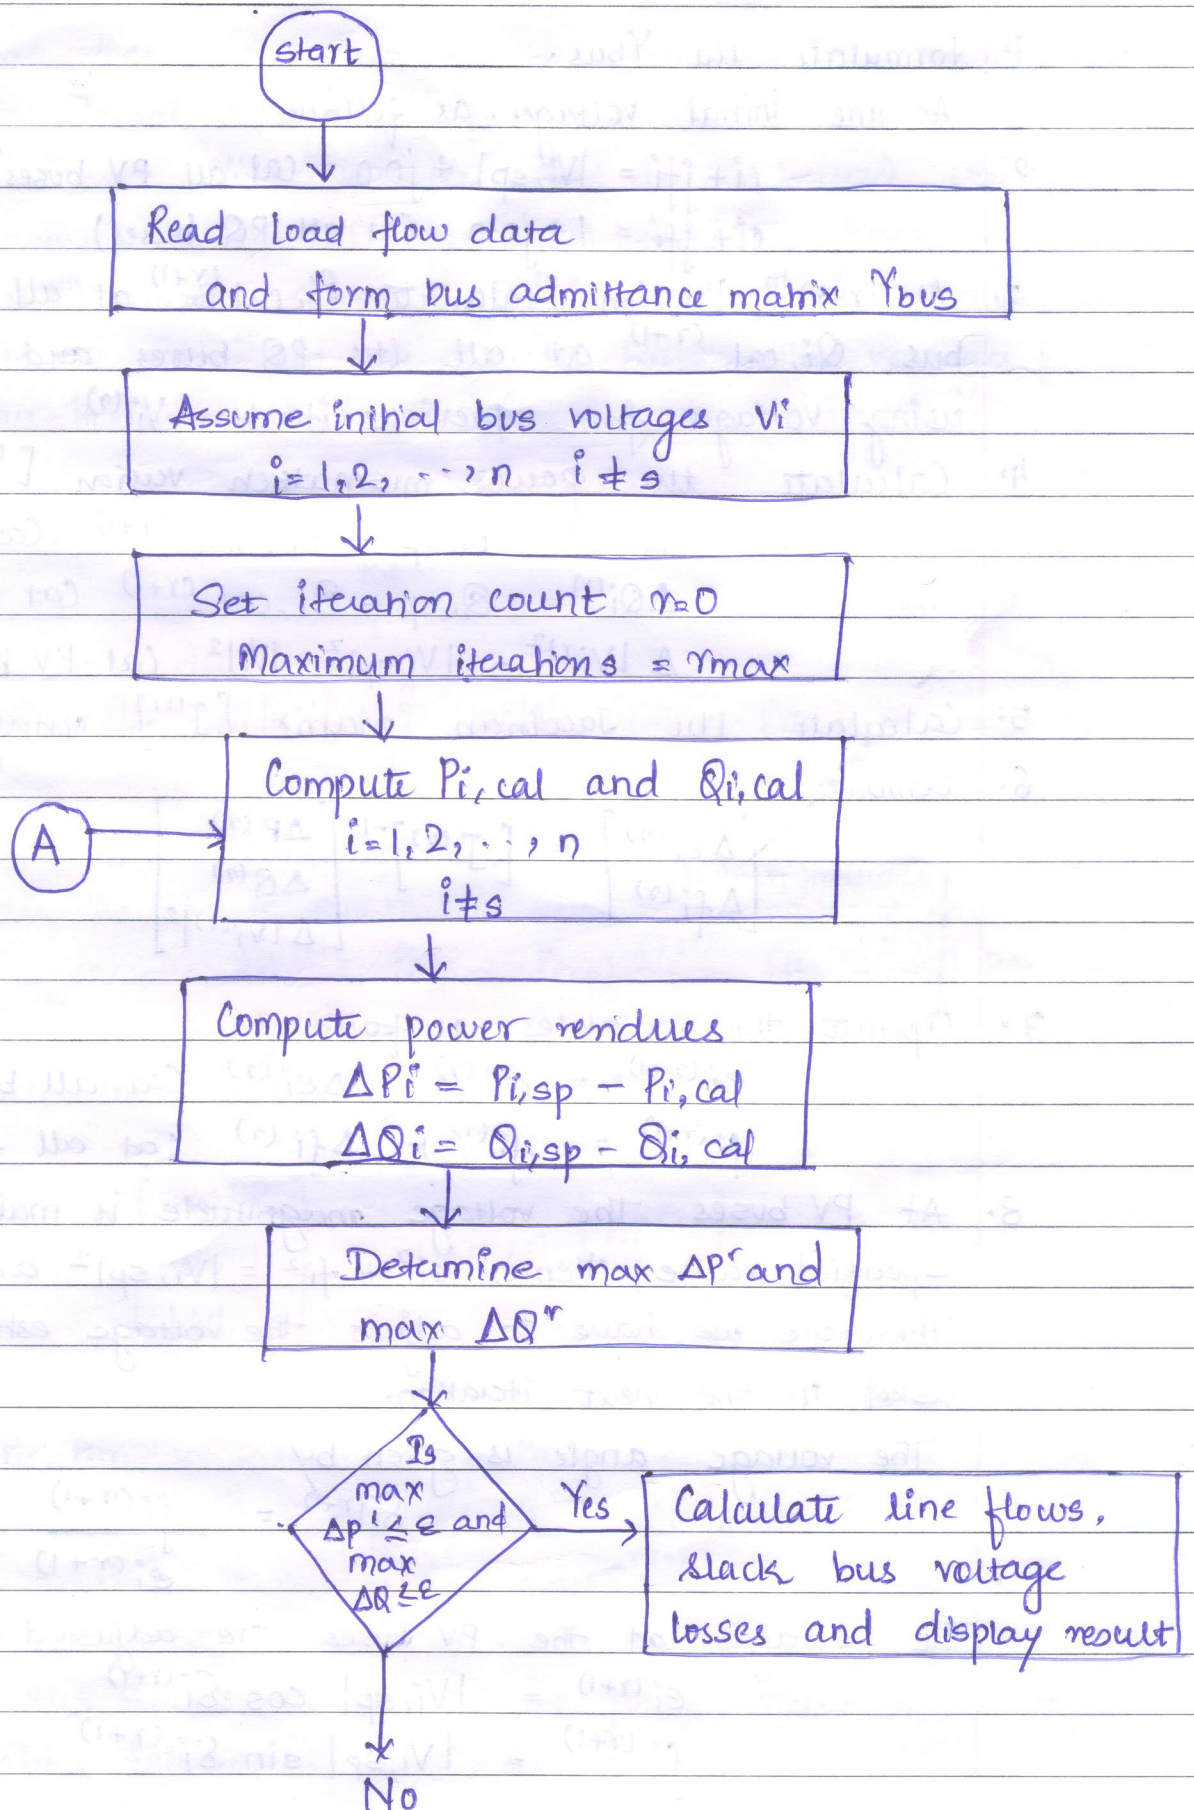 start
Read Load flow data
and form bus admittance matrix Ybus
Assume initial bus voltages Vi
i=1,2, ..., n i ≠ s
Set iteration count r=0
Maximum iterations = rmax
Compute Pi,cal and Qi,cal
A
i=1,2, ..., n
i≠s
Compute power residues
ΔPi = Pi,sp - Pi,cal
ΔQi = Qi,sp - Qi,cal
Determine max ΔPʳ and
max ΔQʳ
Is
max
ΔPʳ ≤ ε and
max
ΔQ ≤ ε
Yes
Calculate line flows,
slack bus voltage
losses and display result
No